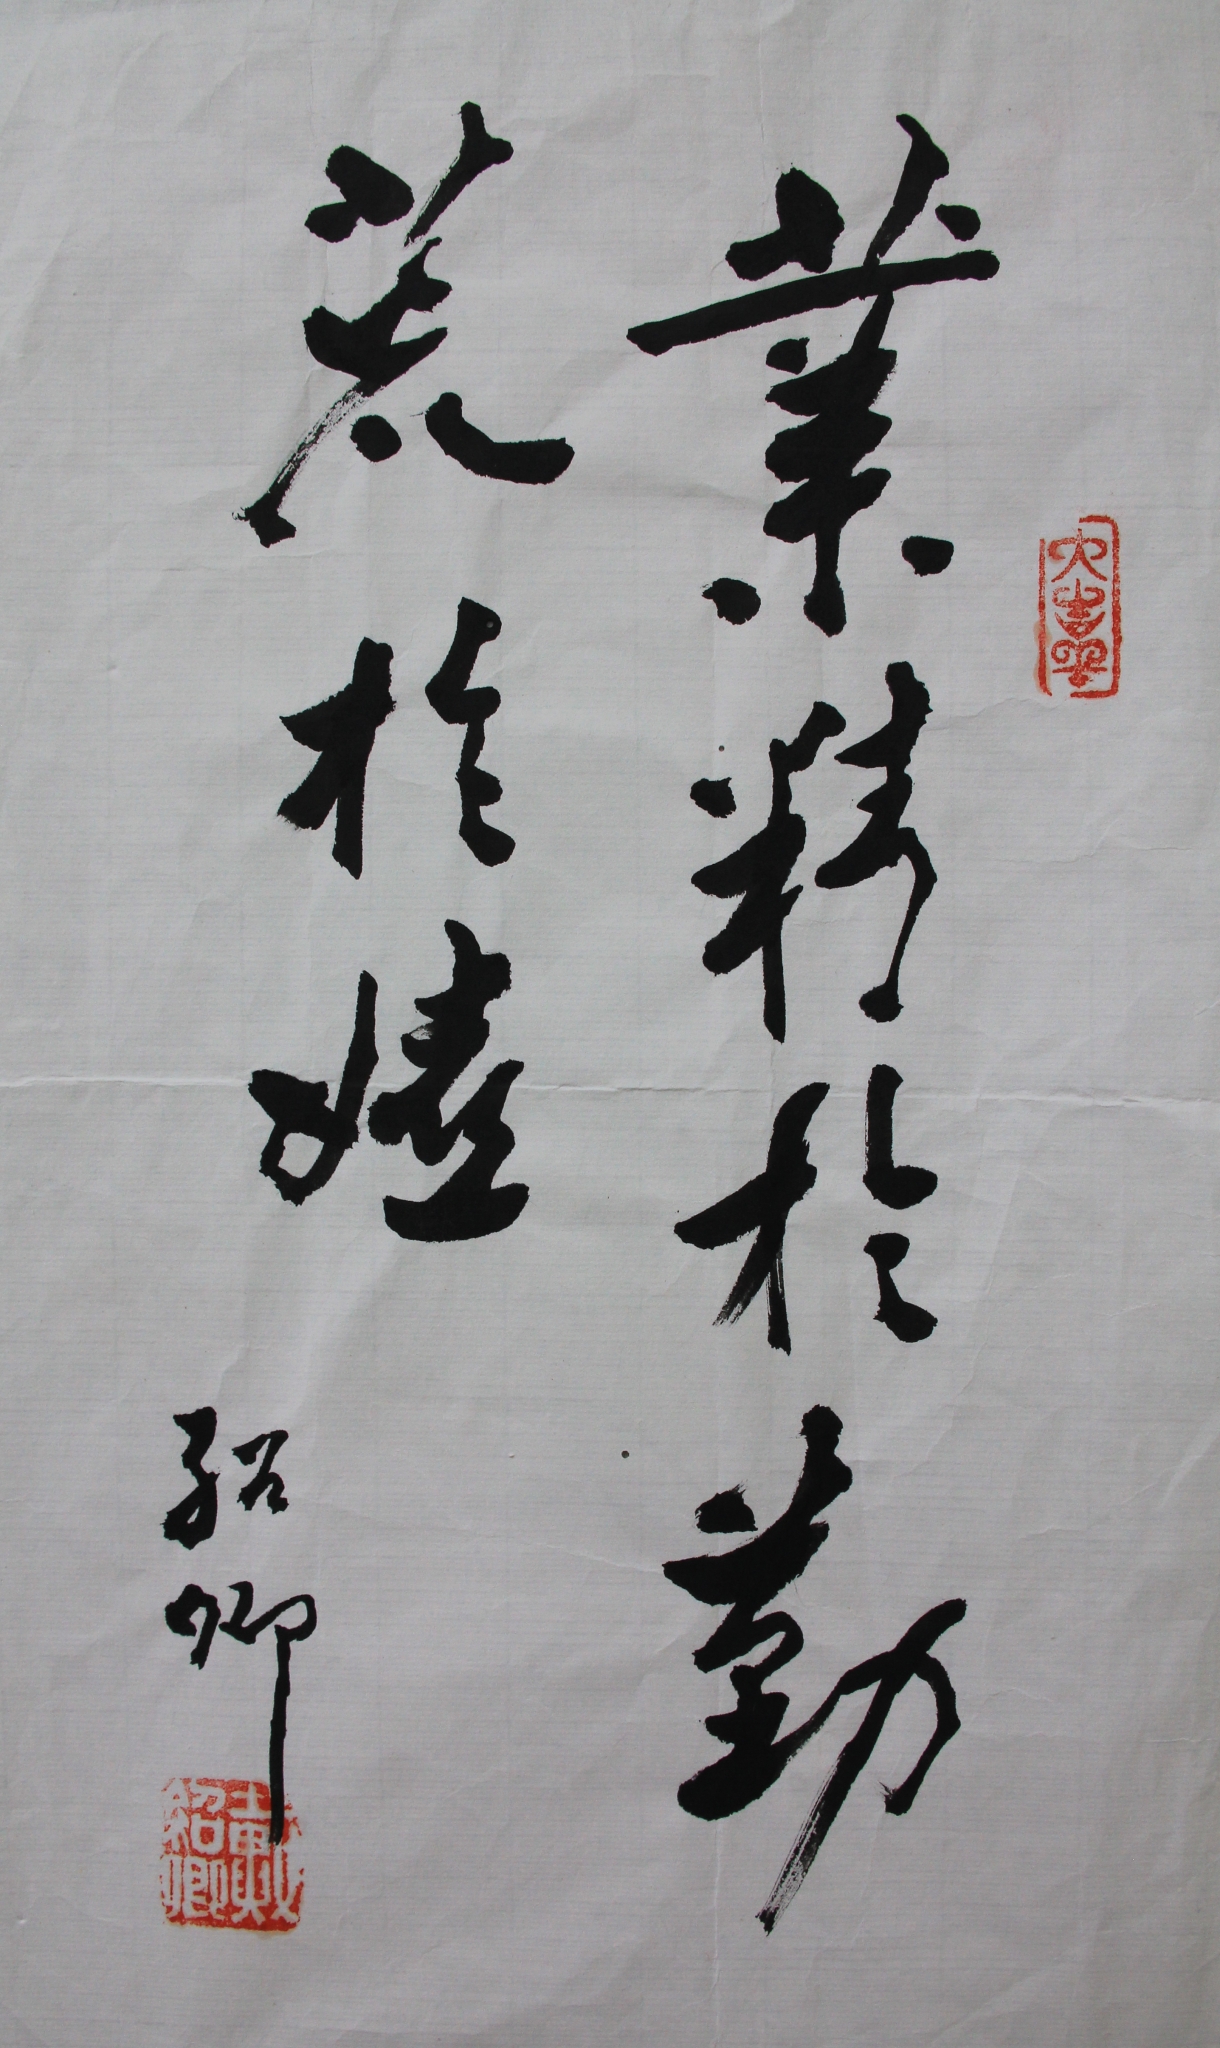 業精於勤
荒於嬉
紹卿
大吉羊
紹卿